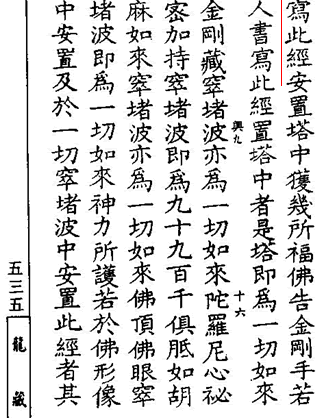 寫此經安置塔中獲幾所福佛告金剛手若
人書寫此經置塔中者是塔即為一切如來
興九
十六
金剛藏窣堵波亦為一切如來陀羅尼心祕
密加持窣堵波即為九十九百千俱胝如胡
麻如來窣堵波亦為一切如來佛頂佛眼窣
堵波即為一切如來神力所護若於佛形像
中安置及於一切窣堵波中安置此經者其
五三五
龍藏